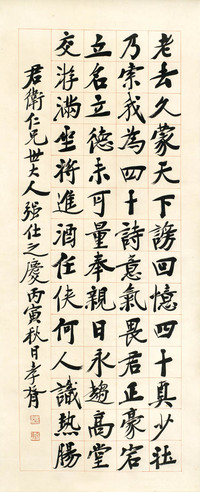 老去久蒙天下謗回憶四十真少壯
乃索我為四十詩意氣畏君正豪宕
立名立德未可量奉親日永趨高堂
交游滿坐將進酒任俠何人識熱腸
君衛仁兄世大人強仕之慶丙寅秋日孝胥